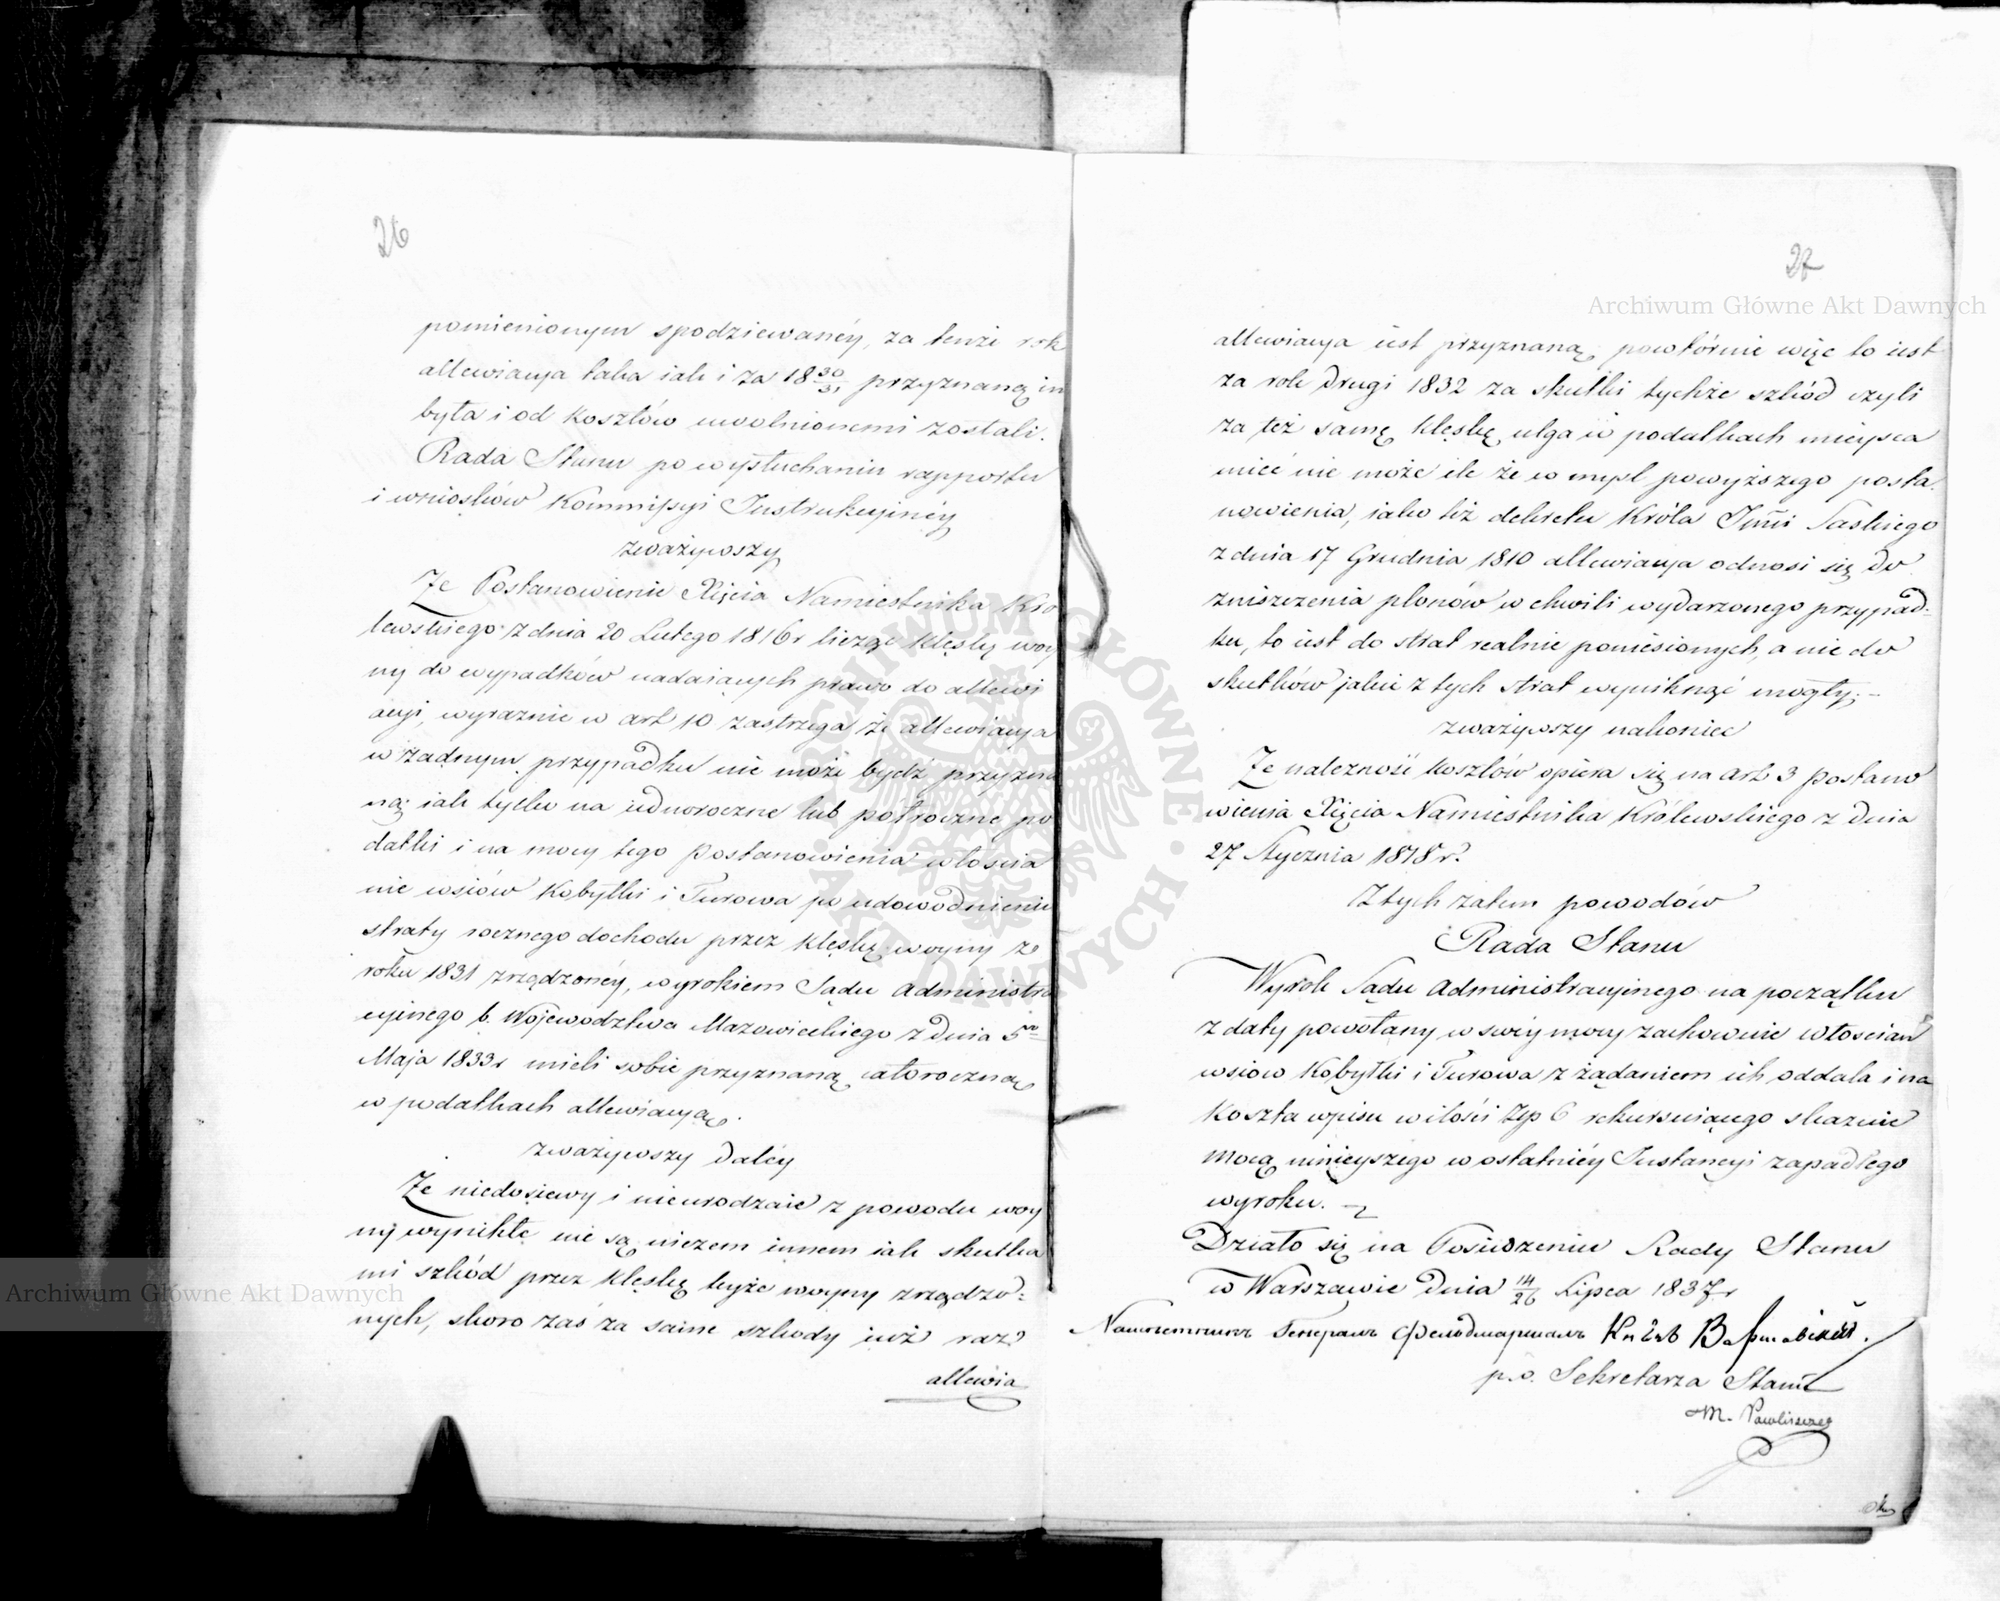 26
pomienionym spodziewanéy, za tenże rok
allewiacya taka iak i za 18 30/31 przyznaną im
była i od kosztów uwolnionemi zostali.
Rada Stanu po wysłuchaniu rapportu
i wniosków Kommissyi Instrukcyinéy
zważywszy
Że Postanowienie Xięcia Namiestnika Kró
lewskiego z dnia 20 Lutego 1816 r licząc klęskę woy
ny do wypadków nadaiących prawo do allewi
acyi, wyraznie w art 10 zastrzega że allewiacya
w żadnym przypadku nie może bydź przyzna
ną iak tylko na iednoroczne lub pótroczne po
datki i na mocy tego postanowienia włościa
nie wsiów Kobyłki i Turowa po udowodnieniu
straty rocznego dochodu przez klęskę woyny z
roku 1831 zrządzonéy, wyrokiem Sądu Administra
cyinego b. Województwa Mazowieckiego z dnia 5go
Maja 1833 r mieli sobie przyznaną całoroczną
w podatkach allewiacyą.
zważywszy daléy
Że niedosiewy i nieurodzaie z powodu woy
ny wynikłe nie są niczem innem iak skutka
mi szkód przez klęskę teyże woyny zrządzo=
nych, skoro zaś za same szkody iuż raz
allewia
27
allewiacya iest przyznaną, powtórnie więc to iest
za rok drugi 1832 za skutki tychże szkód czyli
za też samę klęskę ulga w podatkach mieysca
mieć nie może ile że w mysl powyższego posta=
nowienia, iako też dekretu Króla Jmci Saskiego
z dnia 17 Grudnia 1810 allewiacya odnosi się do
zniszczenia plonów w chwili wydarzonego przypad=
ku, to iest do strat realnie poniesionych, a nie do
skutków jakie z tych strat wyniknąć mogły. –
zważywszy nakoniec
Że należność kosztów opiera się na art 3 postano
wienia Xięcia Namiestnika Królewskiego z dnia
27 Stycznia 1818 r.
Z tych zatem powodów
Rada Stanu
Wyrok Sądu Administracyinego na początku
z daty powołany w swéy mocy zachowuie włoscian
wsiow Kobyłki i Turowa z żądaniem ich oddala i na
koszta wpisu w ilości Złp 6 rekursuiącego skazuie
mocą ninieyszego w ostatniéy Instancyi zapadłego
wyroku. –
Działo się na Posiedzeniu Rady Stanu
w Warszawie dnia 14/26 Lipca 1837 r
Намѣстникъ Генералъ Фельдмаршалъ Князь Варшавскій.
p.o. Sekretarza Stanu
M. Pawliszczew
Archiwum Główne Akt Dawnych
Archiwum Główne Akt Dawnych
ARCHIWUM GŁÓWNE AKT DAWNYCH